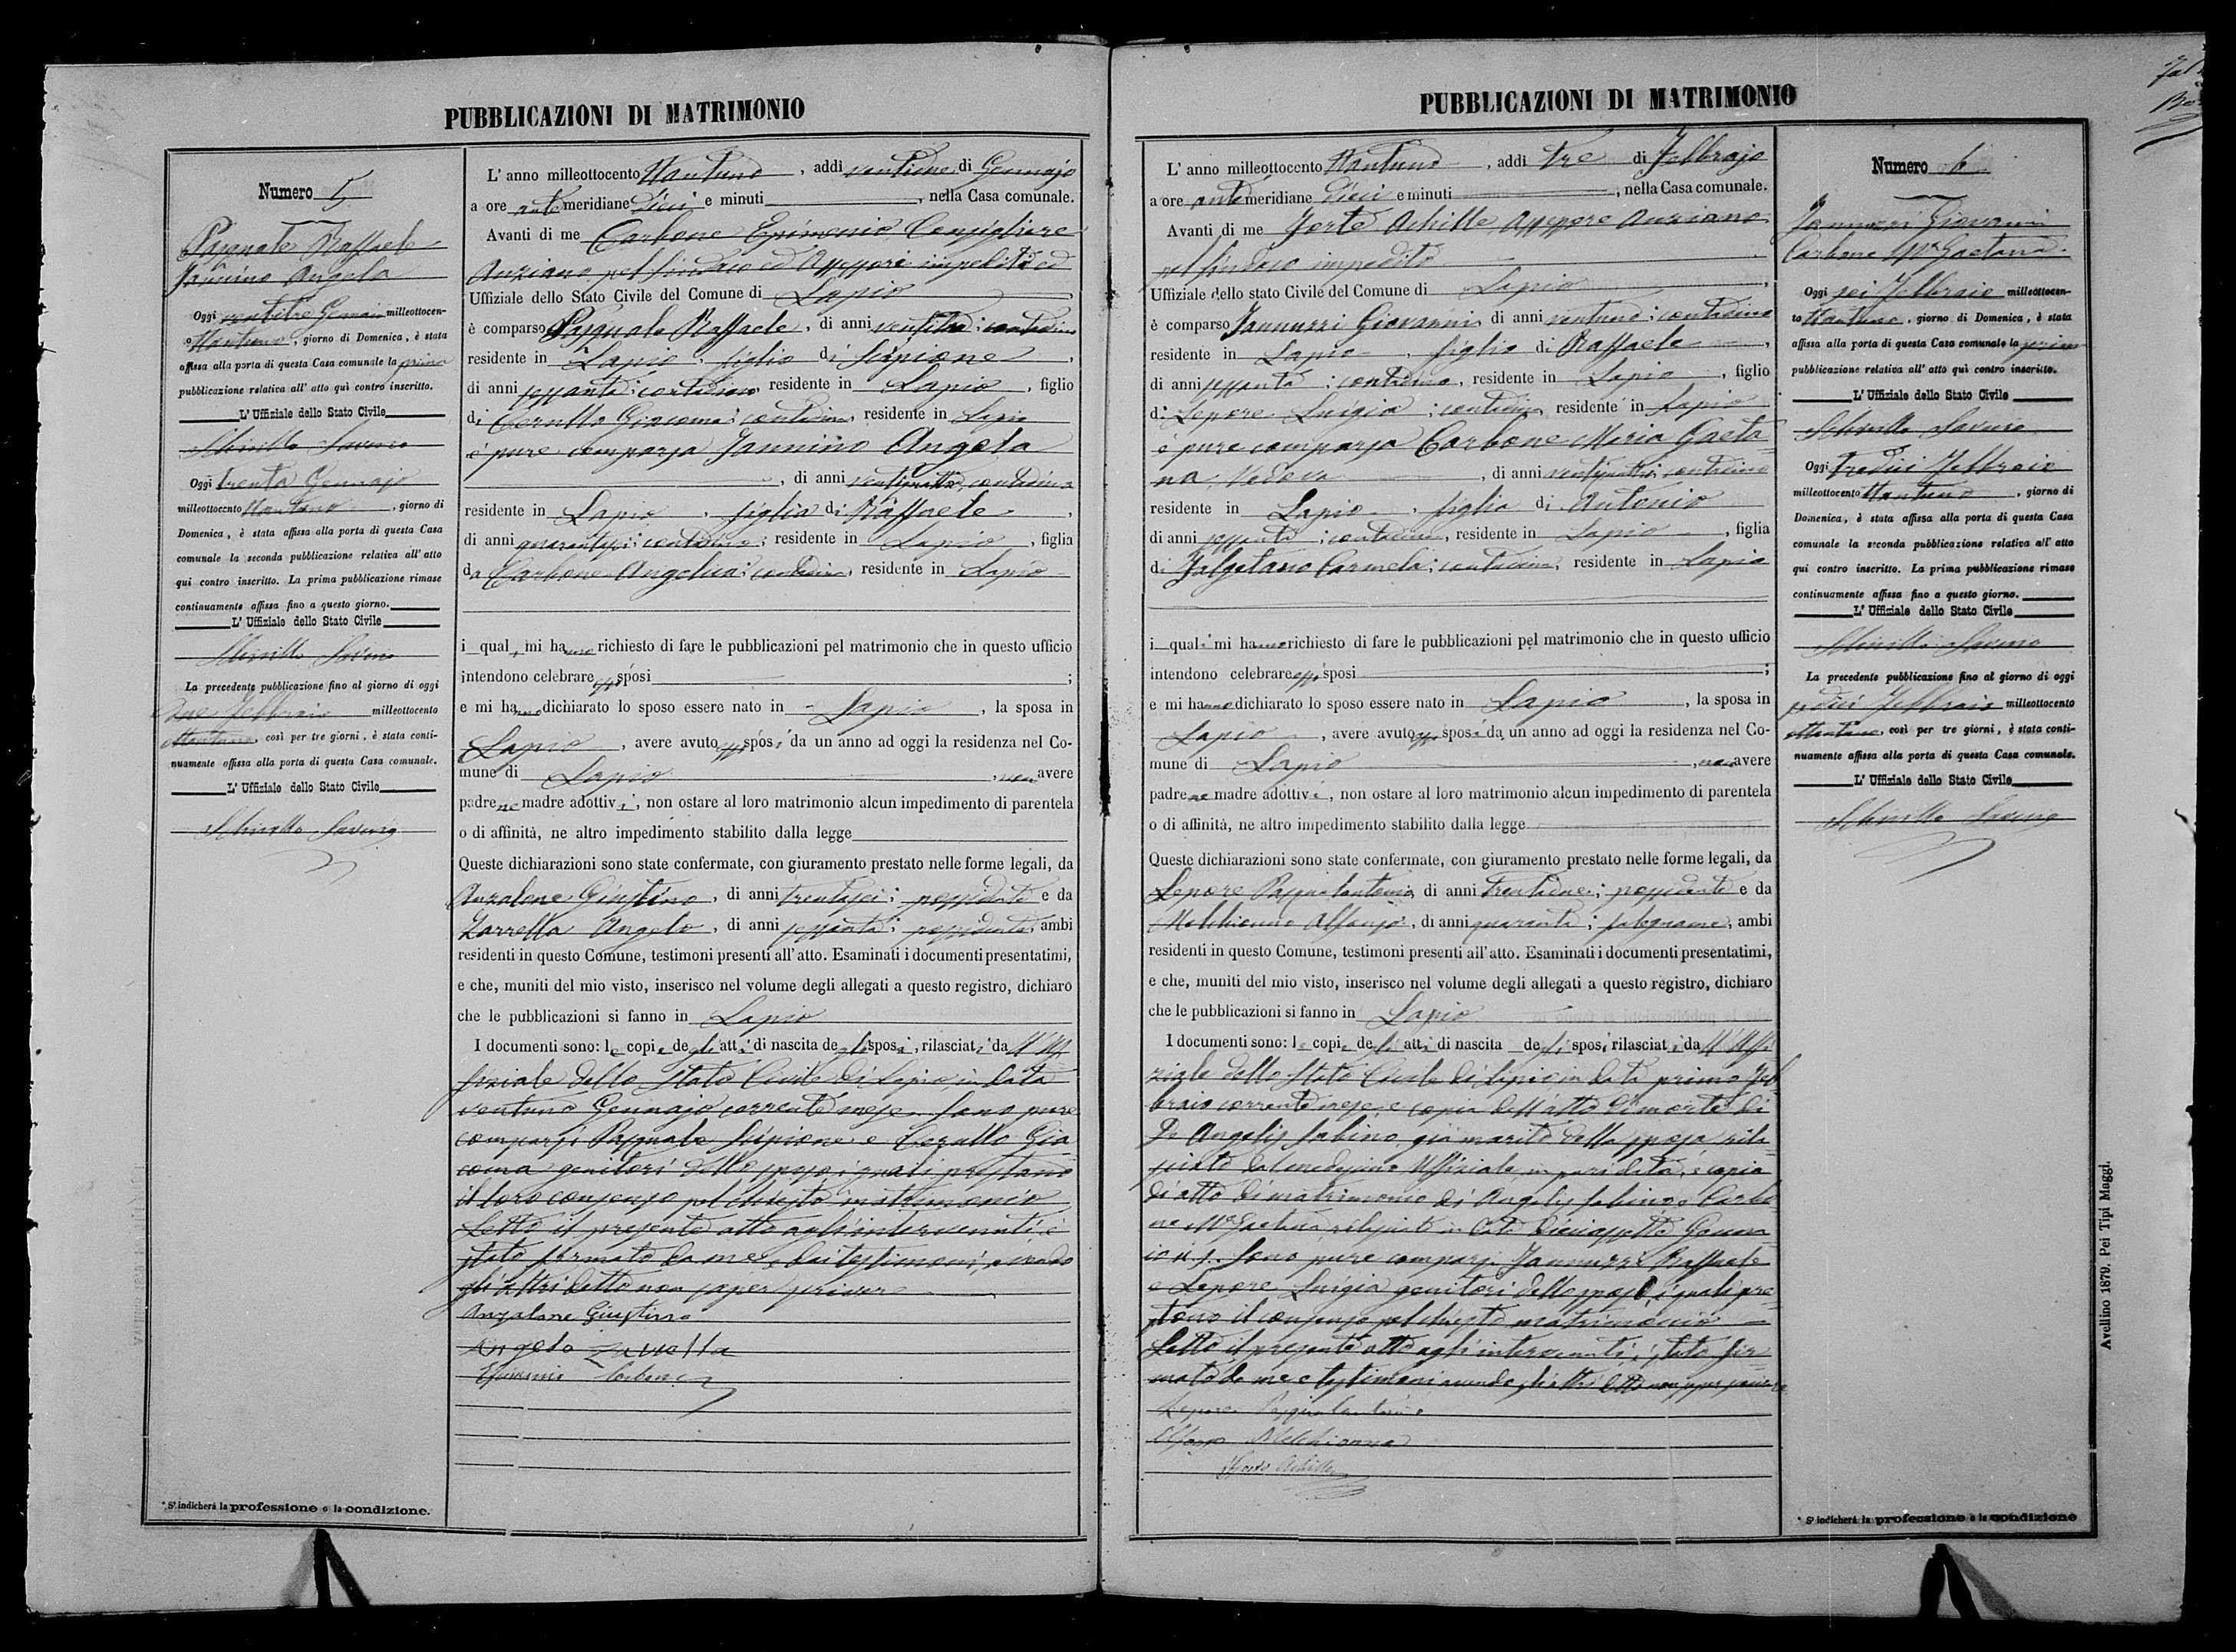 PUBBLICAZIONI DI MATRIMONIO
Numero 5
Pasquale Raffaele
Jannino Angela
Oggi ventitre Gennaio milleottocen-
to ottantuno, giorno di Domenica, è stata
affissa alla porta di questa Casa comunale la prima
pubblicazione relativa all' atto quì contro inscritto.
L' Uffiziale dello Stato Civile
Oggi trenta Gennajo
milleottocento ottantuno, giorno di
Domenica, è stata affissa alla porta di questa Casa
comunale la seconda pubblicazione relativa all' atto
qui contro inscritto. La prima pubblicazione rimase
continuamente affissa fino a questo giorno.
L' Uffiziale dello Stato Civile
La precedente pubblicazione fino al giorno di oggi
due Febbraio milleottocento
ottantuno, così per tre giorni, è stata conti-
nuamente affissa alla porta di questa Casa comunale.
L' Uffiziale dello Stato Civile
* S' indicherà la professione o la condizione.
L' anno milleottocento ottantuno, addì ventidue di Gennajo
a ore anti meridiane dieci e minuti , nella Casa comunale.
Avanti di me Carbone Epimenio Consigliere
Anziano pel Sindaco ed Assessore impediti ed
Uffiziale dello Stato Civile del Comune di Lapio
è comparso Pasquale Raffaele, di anni ventitre; contadino
residente in Lapio, figlio di Scipione,
di anni sessanta; contadino, residente in Lapio, figlio
di Cerullo Giacoma; contadina, residente in Lapio
è pure comparsa Jannino Angela
, di anni ventiquattro, contadina
residente in Lapio, figlia di Raffaele,
di anni quarantasei; contadino; residente in Lapio, figlia
da Carbone Angelica; contadina, residente in Lapio
i quali mi hanno richiesto di fare le pubblicazioni pel matrimonio che in questo ufficio
intendono celebrare essi sposi ;
e mi hanno dichiarato lo sposo essere nato in Lapio, la sposa in
Lapio, avere avuto essi sposi da un anno ad oggi la residenza nel Co-
mune di Lapio, non avere
padre nè madre adottivi, non ostare al loro matrimonio alcun impedimento di parentela
o di affinità, ne altro impedimento stabilito dalla legge
Queste dichiarazioni sono state confermate, con giuramento prestato nelle forme legali, da
Anzalone Giustino, di anni trentasei; possidente e da
Zarrella Angelo, di anni sessanta; possidente, ambi
residenti in questo Comune, testimoni presenti all' atto. Esaminati i documenti presentatimi,
e che, muniti del mio visto, inserisco nel volume degli allegati a questo registro, dichiaro
che le pubblicazioni si fanno in Lapio
I documenti sono: le copie degli atti di nascita degli sposi, rilasciati da ll' Uf
fiziale dello Stato Civile di Lapio in data
ventuno Gennajo corrente mese. Sono pure
comparsi Pasquale Scipione e Cerullo Gia
coma genitori dello sposo, i quali prestano
il loro consenso pel chiesto matrimonio
Letto il presente atto agli intervenuti è
stato firmato da me e dai testimoni, avendo
gli altri detto non saper scrivere
Anzalone Giustino
Angelo Zarrella
Epimenio Carbone
PUBBLICAZIONI DI MATRIMONIO
L' anno milleottocento ottantuno, addì tre di Febbrajo
a ore anti meridiane dieci e minuti , nella Casa comunale.
Avanti di me Forte Achille Assessore Anziano
pel Sindaco impedito
Uffiziale dello stato Civile del Comune di Lapio,
è comparso Jannuzzi Giovanni, di anni ventuno; contadino
residente in Lapio, figlio di Raffaele,
di anni sessanta; contadino, residente in Lapio, figlio
di Lepore Luigia; contadina, residente in Lapio
è pure comparsa Carbone Maria Gaeta-
na, Vedova, di anni ventiquattro; contadina
residente in Lapio, figlia di Antonio
di anni sessanta; contadino, residente in Lapio, figlia
di Falzetano Carmela; contadina; residente in Lapio
i quali mi hanno richiesto di fare le pubblicazioni pel matrimonio che in questo ufficio
intendono celebrare essi sposi ;
e mi hanno dichiarato lo sposo essere nato in Lapio, la sposa in
Lapio, avere avuto essi sposi da un anno ad oggi la residenza nel Co-
mune di Lapio, non avere
padre nè madre adottivi, non ostare al loro matrimonio alcun impedimento di parentela
o di affinità, ne altro impedimento stabilito dalla legge
Queste dichiarazioni sono state confermate, con giuramento prestato nelle forme legali, da
Lepore Pasqualantonio, di anni trentadue; possidente e da
Melchionna Alfonso, di anni quaranta; falegname, ambi
residenti in questo Comune, testimoni presenti all' atto. Esaminati i documenti presentatimi,
e che, muniti del mio visto, inserisco nel volume degli allegati a questo registro, dichiaro
che le pubblicazioni si fanno in Lapio
I documenti sono: le copie degli atti di nascita degli sposi rilasciati da ll' Uffi
ziale dello Stato Civile di Lapio in data primo Feb
braio corrente mese, e copia dell' atto di morte di
De Angelis Sabino già marito della sposa, rila
sciato dal medesimo Uffiziale in pari data, e copia
di atto di matrimonio di Angelis Sabino e Carbo
ne Mª Gaetana rilasciato in data diciassette Genna
io u. s. Sono pure comparsi Jannuzzi Raffaele
e Lepore Luigia genitori dello sposo, i quali pre-
stano il consenso pel chiesto matrimonio
Letto il presente atto agli intervenuti, è stato fir
mato da me e testimoni avendo gli altri detto non saper scrivere
Lepore Pasqualantonio
Alfonso Melchionna
Forte Achille
Numero 6
Jannuzzi Giovanni
Carbone Mª Gaetana
Oggi sei Febbraio milleottocen-
to ottantuno, giorno di Domenica, è stata
affissa alla porta di questa Casa comunale la prima
pubblicazione relativa all' atto quì contro inscritto.
L' Uffiziale dello Stato Civile
Oggi tredici Febbraio
milleottocento ottantuno, giorno di
Domenica, è stata affissa alla porta di questa Casa
comunale la seconda pubblicazione relativa all' atto
qui contro inscritto. La prima pubblicazione rimase
continuamente affissa fino a questo giorno.
L' Uffiziale dello Stato Civile
La precedente pubblicazione fino al giorno di oggi
sedici Febbraio milleottocento
ottantuno, così per tre giorni, è stata conti-
nuamente affissa alla porta di questa Casa comunale.
L' Uffiziale dello Stato Civile
* S' indicherà la professione o la condizione
Avellino 1879. Pei Tipi Maggi.